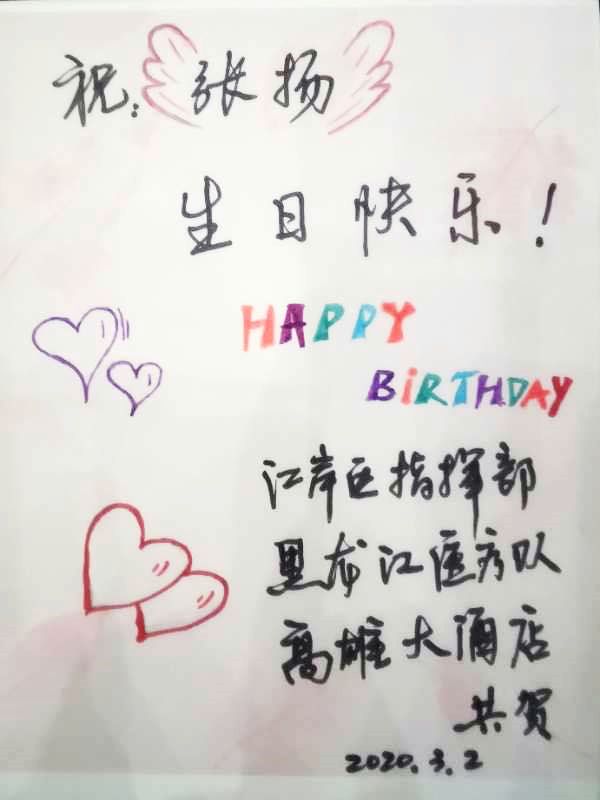 祝：张扬
生日快乐！
HAPPY
BIRTHDAY
江岸区指挥部
黑龙江医疗队
高雄大酒店
共贺
2020.3.2